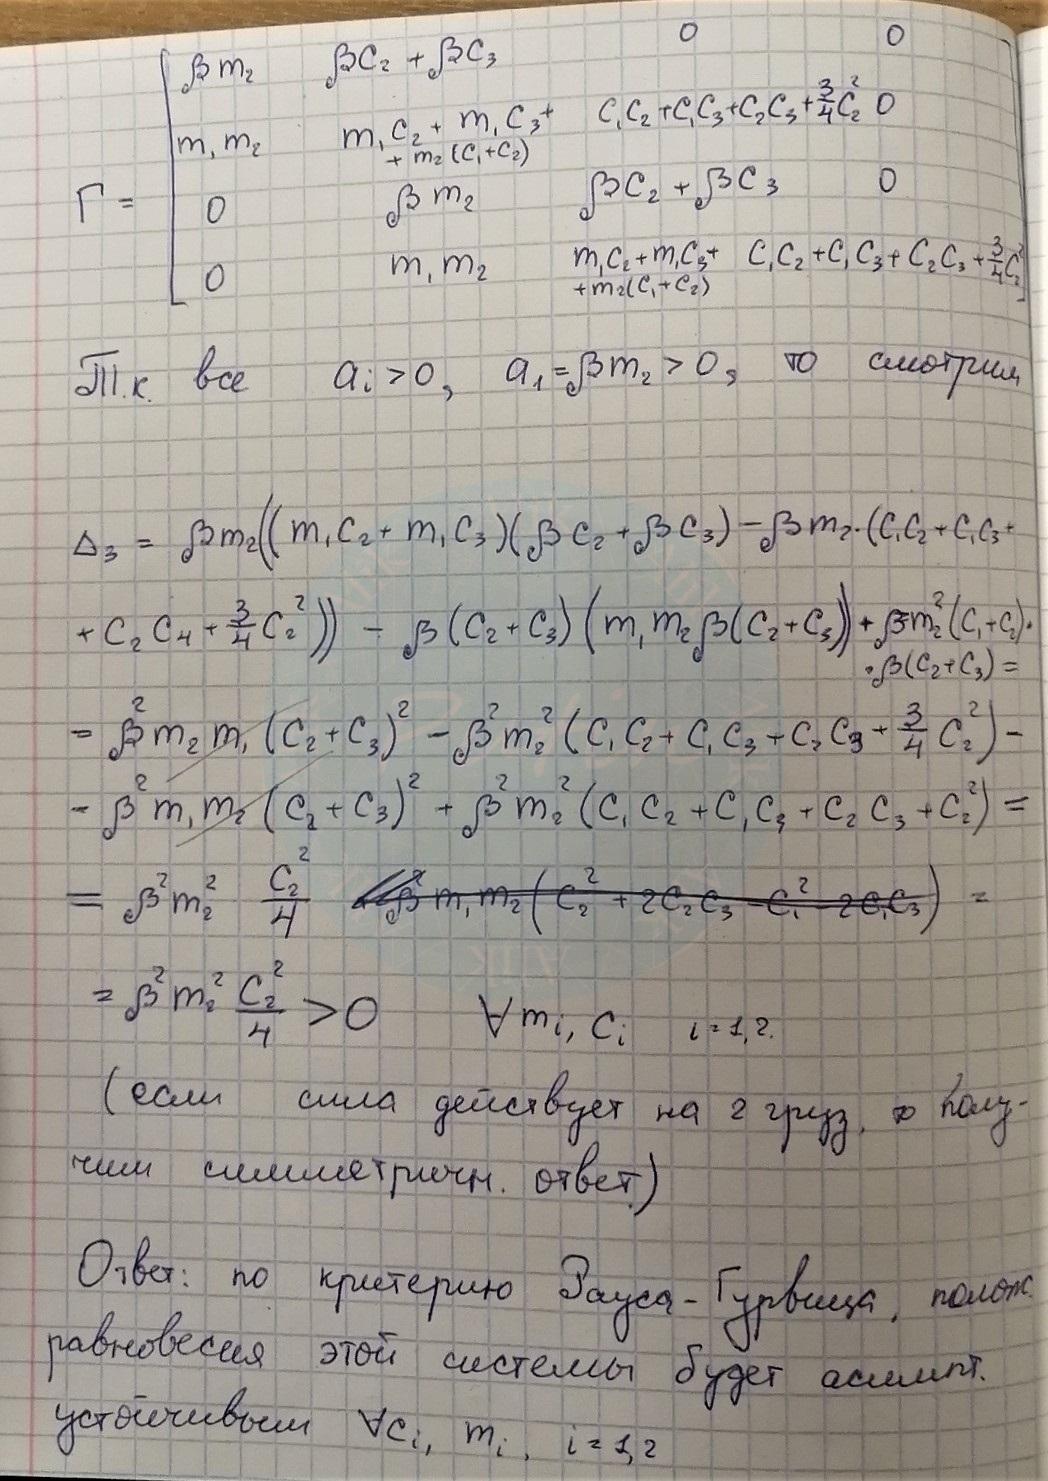 βm₂ βC₂ + βC₃ 0 0
m₁m₂ m₁C₂ + m₁C₃ + C₁C₂+C₁C₃+C₂C₃+3/4C₂² 0
+ m₂(C₁+C₂)
Г = 0 βm₂ βC₂ + βC₃ 0
0 m₁m₂ m₁C₂+m₁C₃+ C₁C₂+C₁C₃+C₂C₃+3/4C₂²
+m₂(C₁+C₂)
Т.к. все aᵢ>0, a₁=βm₂>0, то смотрим
Δ₃ = βm₂((m₁C₂+m₁C₃)(βC₂+βC₃)-βm₂·(C₁C₂+C₁C₃+
+C₂C₄+3/4C₂²)) - β(C₂+C₃)(m₁m₂β(C₂+C₃))+βm₂²(C₁+C₂)·
·β(C₂+C₃)=
= β²m₂m₁(C₂+C₃)² - β²m₂²(C₁C₂+C₁C₃+C₂C₃+3/4C₂²) -
- β²m₁m₂(C₂+C₃)² + β²m₂²(C₁C₂+C₁C₃+C₂C₃+C₂²) =
= β²m₂² C₂²/4 β²m₁m₂(C₂²+2C₂C₃-C₁²-2C₁C₃) =
= β²m₂² C₂²/4 >0 ∀mᵢ, Cᵢ i=1,2.
(если сила действует на 2 груз, то полу-
чим симметричн. ответ)
Ответ: по критерию Рауса-Гурвица, полож.
равновесия этой системы будет асимпт.
устойчивым ∀Cᵢ, mᵢ, i=1,2